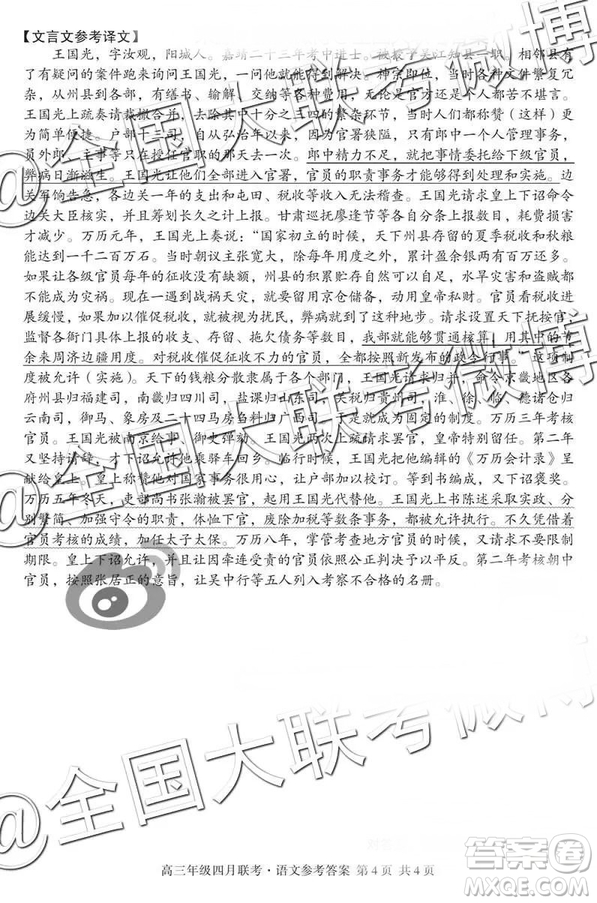 【文言文参考译文】
王国光，字汝观，阳城人。嘉靖二十三年考中进士。被授予吴江知县一职，相邻县有
了有疑问的案件跑来询问王国光，一问他就能得到解决。神宗即位，当时各种文件繁复冗
杂，从州县到各部，有缮书、输解、交纳等各种费用，公私上下人人都苦不堪言。
王国光上疏奏请裁撤合并，去除其中十分之三四的繁杂环节，当时人们都称赞（这样）更
为简单便捷。户部十三司，自从弘治年以来，因为官署狭隘，只有郎中一个人管理事务，
员外郎、主事等只在授任官职的那天去一次。郎中精力不足，就把事情委托给下级官员，
弊病日渐滋生。王国光让他们全部进入官署，官员的职责事务才能够得到处理和实施。边
关军饷告急，各边关一年的支出和屯田、税收等收入无法稽查。王国光请求皇上下诏命令
边关大臣核实，并且筹划长久之计上报。甘肃巡抚廖逢节等各自上报数目，耗费损害
才减少。万历元年，王国光上奏说：“国家初立的时候，天下州县存留的夏季税收和秋粮
能达到一千二百万石。当时朝议主张宽大，除每年用度之外，累计盈余银两有百万还多。
如果让各级官员每年的征收没有缺额，州县的积累自然充足，水旱灾害和盗贼都不
能成为灾祸。现在一遇到兵荒，就要借用京仓储备，动用皇帝私财。官员看征收进
展缓慢，如果加以催促征收，就认为是扰民，弊病就到了这种地步。请求设置天下抚按官，
监督各衙门具体上报的收支、存留、拖欠债务等数目，我部就能够贯通核算，用其中的节
余来周济边疆用度。对税收催促征收不力的官员，全都按照新发布的政令行事”这项制
度被允许（实施）。天下的钱粮分散隶属于各司。王国光请求让京畿地区各
府州县归福建司，南畿归四川司，盐课归山东司，关税归贵州司，淮、徐、临、德诸仓归
云南司，御马、象房及二十四马房刍料归广西司，于是成为固定的制度。万历三年考核
官员。王国光被南京给事中、御史弹劾。王国光两次上疏请求罢官，皇帝特别挽留。第二年
又坚持请辞，才下诏允许他乘驿车回乡。临行时候，王国光把他编辑的《万历会计录》呈
给皇上。皇上觉得他对国家事务很用心，让户部加以校订。等到书编成，又下诏褒奖。
万历五年冬天，吏部尚书张瀚被罢官，起用王国光代替他。王国光上书陈述采取实政、分
别繁简、加强守令的职责、体恤下官、废除加税等数条事务，都被允许执行。不久凭借
官员考核的成绩，加任太子太保。万历八年，掌管考查地方官员的时候，又请求不要限制
期限。皇上下诏允许，并且让因牵连受责的官员依照公正判决予以平反。第二年考核朝中
官员，按照张居正的意旨，让吴中行等五人列入考察不合格的名册。
高三年级四月联考·语文参考答案 第4页 共4页
@全国大联考微博
@全国大联考微博
答案圈
MXQE.COM